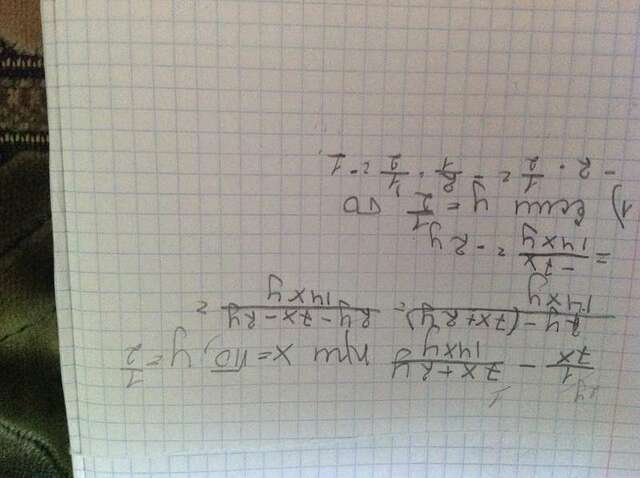 \frac{1}{7x}^{2y} - \frac{7x+2y}{14xy}^{1} при x = √10, y = \frac{1}{2}
\frac{2y-(7x+2y)}{14xy} = \frac{2y-7x-2y}{14xy} =
= \frac{-7x}{14xy} = -2y
1) если y = \frac{1}{2}, то
-2 · \frac{1}{2} = -\frac{2}{1} · \frac{1}{2} = -1